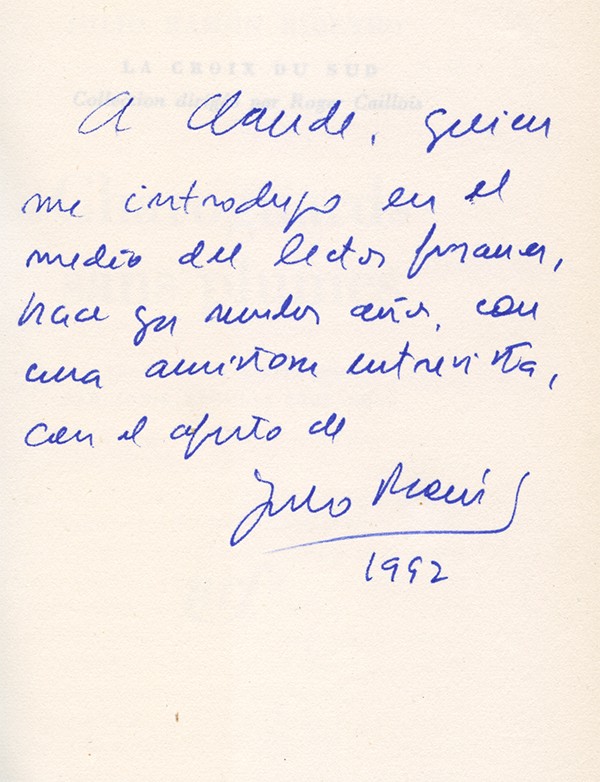 LA CROIX DU SUD
Collection dirigée par Roger Caillois
A Claude, quien
me introdujo en el
medio del lector francés,
hace ya muchos años, con
una amistosa entrevista,
con el afecto de
Julio
1992